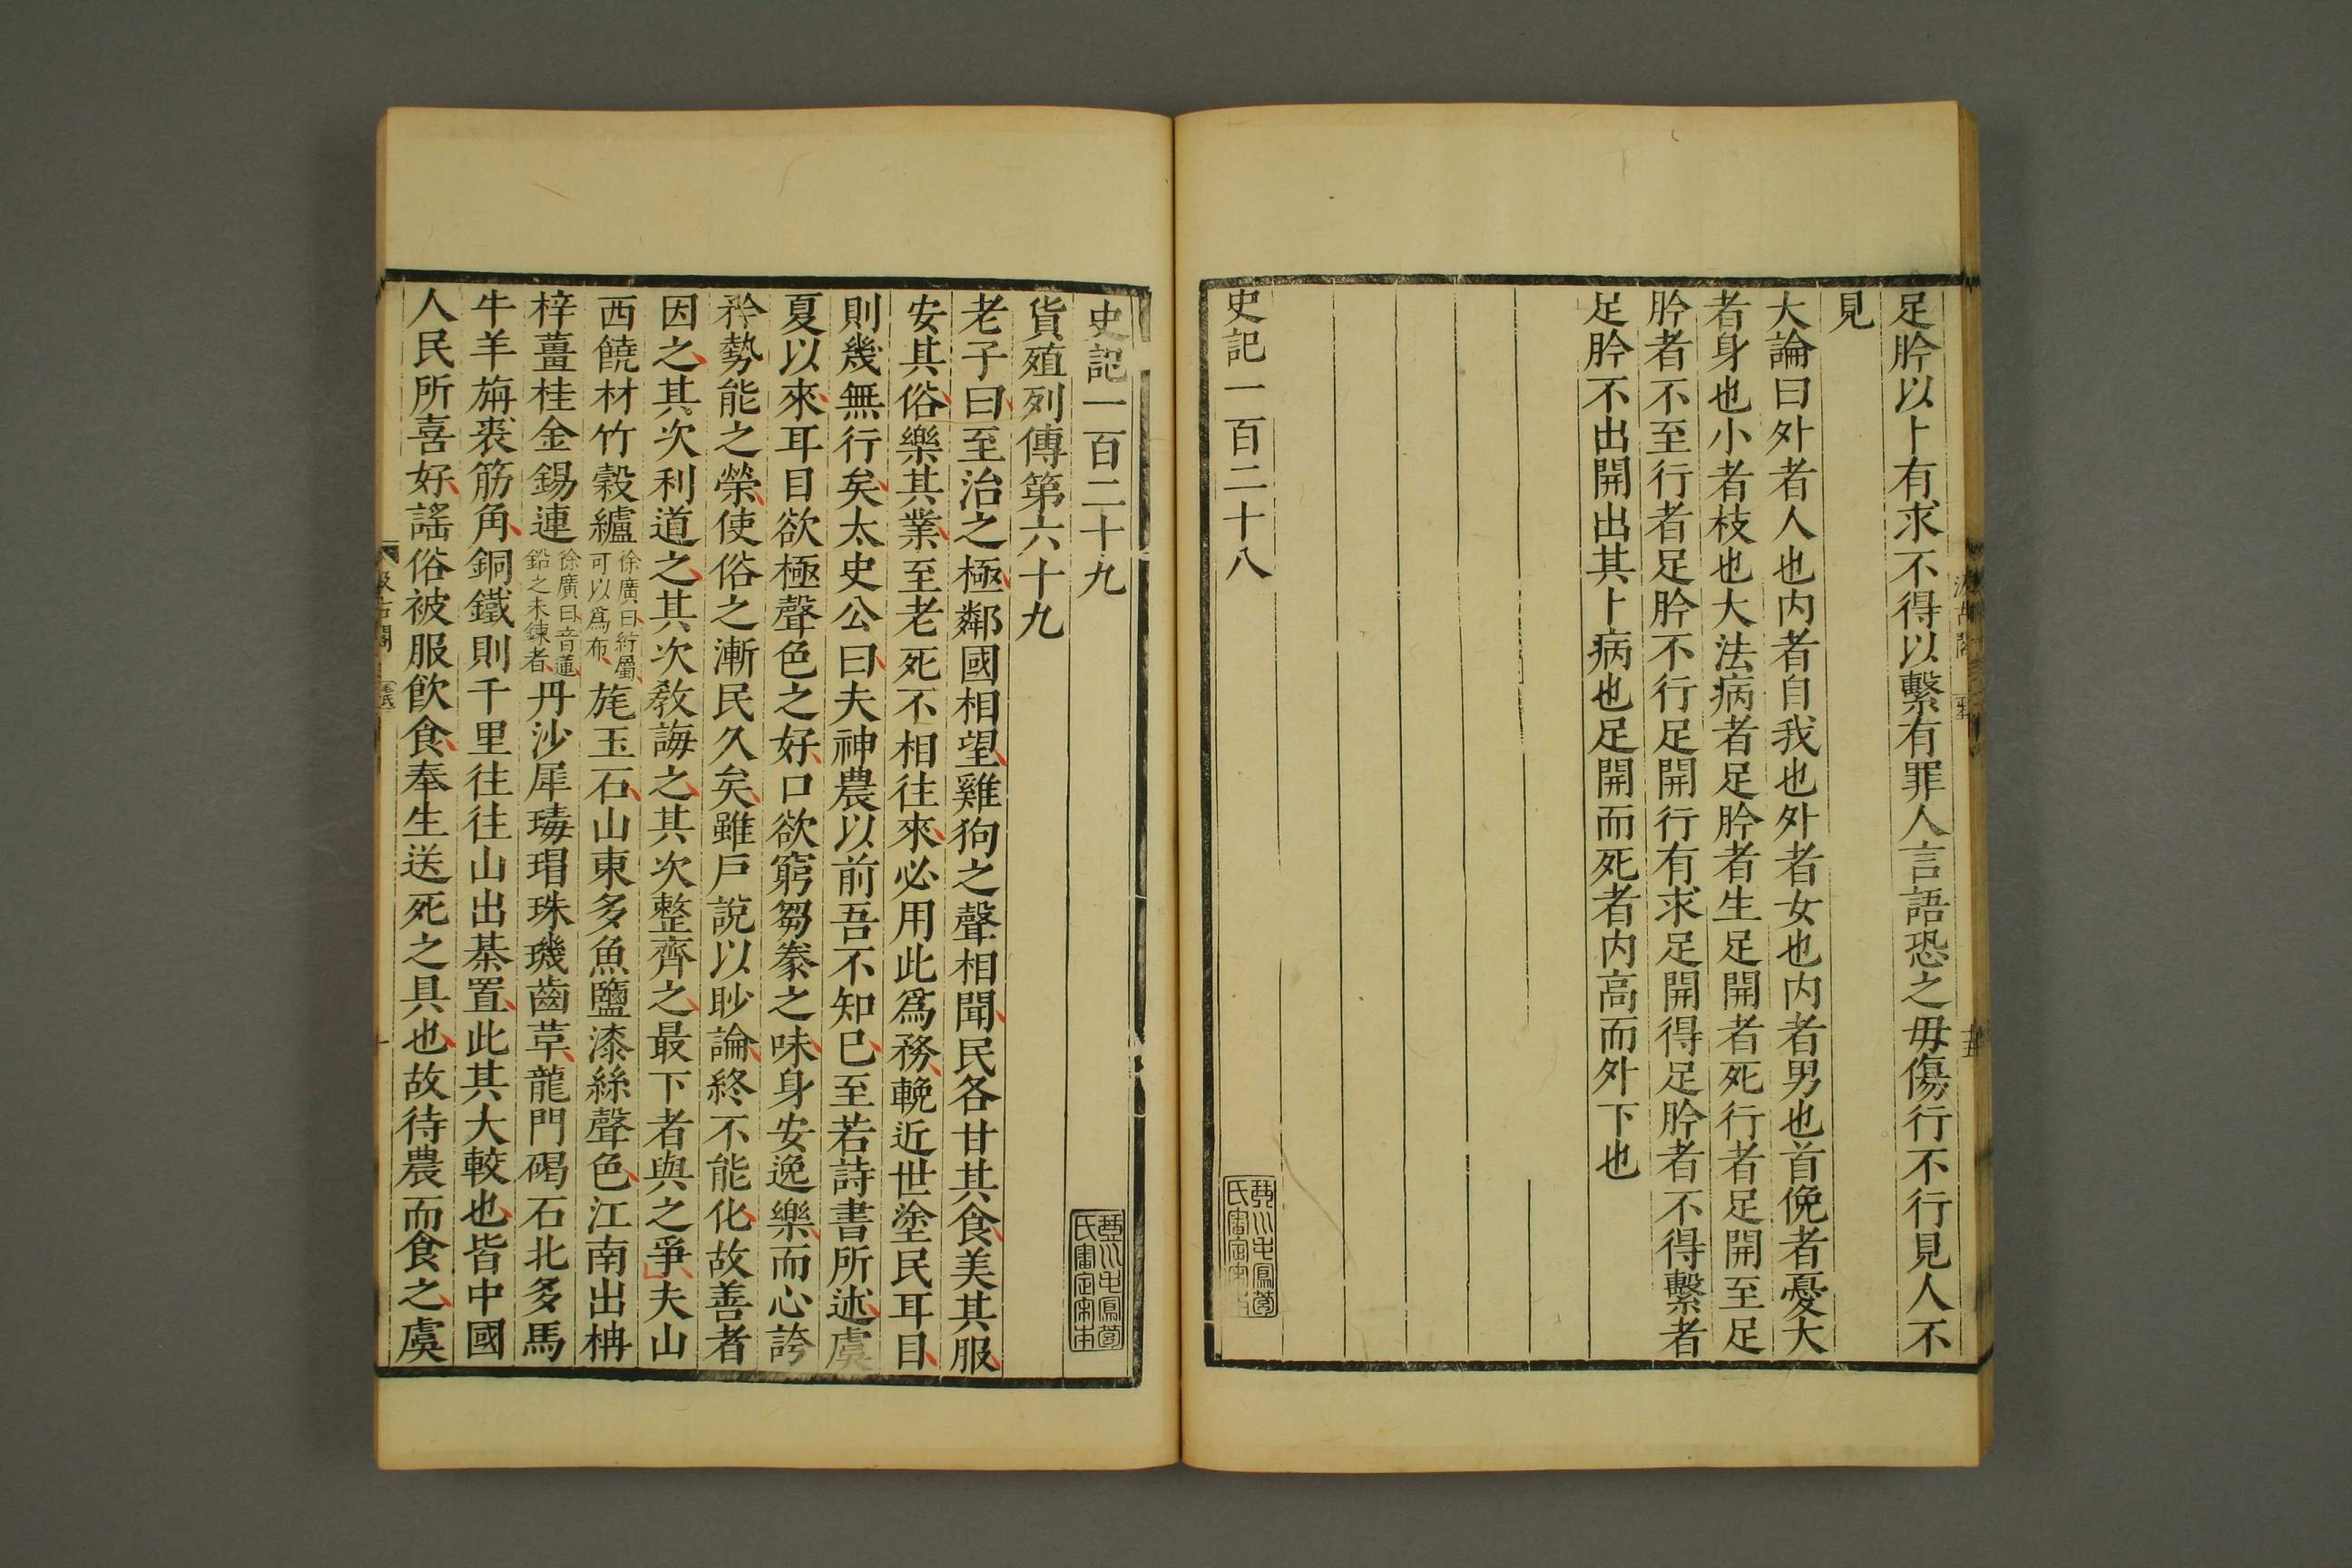 足肣以上有求不得以繫有罪人言語恐之毋傷行不行見人不
見
大論曰外者人也内者自我也外者女也内者男也首俛者憂大
者身也小者枝也大法病者足肣者生足開者死行者足開至足
肣者不至行者足肣不行足開行有求足開得足肣者不得繫者
足肣不出開出其卜病也足開而死者内高而外下也
史記一百二十八
史記一百二十九
貨殖列傳第六十九
老子曰至治之極鄰國相望雞狗之聲相聞民各甘其食美其服
安其俗樂其業至老死不相往來必用此爲務輓近世塗民耳目
則幾無行矣太史公曰夫神農以前吾不知已至若詩書所述虞
夏以來耳目欲極聲色之好口欲窮芻豢之味身安逸樂而心誇
矜勢能之榮使俗之漸民久矣雖戸說以眇論終不能化故善者
因之其次利道之其次教誨之其次整齊之最下者與之爭夫山
西饒材竹穀纑
徐廣曰紵屬
可以爲布
旄玉石山東多魚鹽漆絲聲色江南出枏
梓薑桂金錫連
徐廣曰音蓮
鉛之未鍊者
丹沙犀瑇瑁珠璣齒革龍門碣石北多馬
牛羊旃裘筋角銅鐵則千里往往山出棊置此其大較也皆中國
人民所喜好謠俗被服飮食奉生送死之具也故待農而食之虞